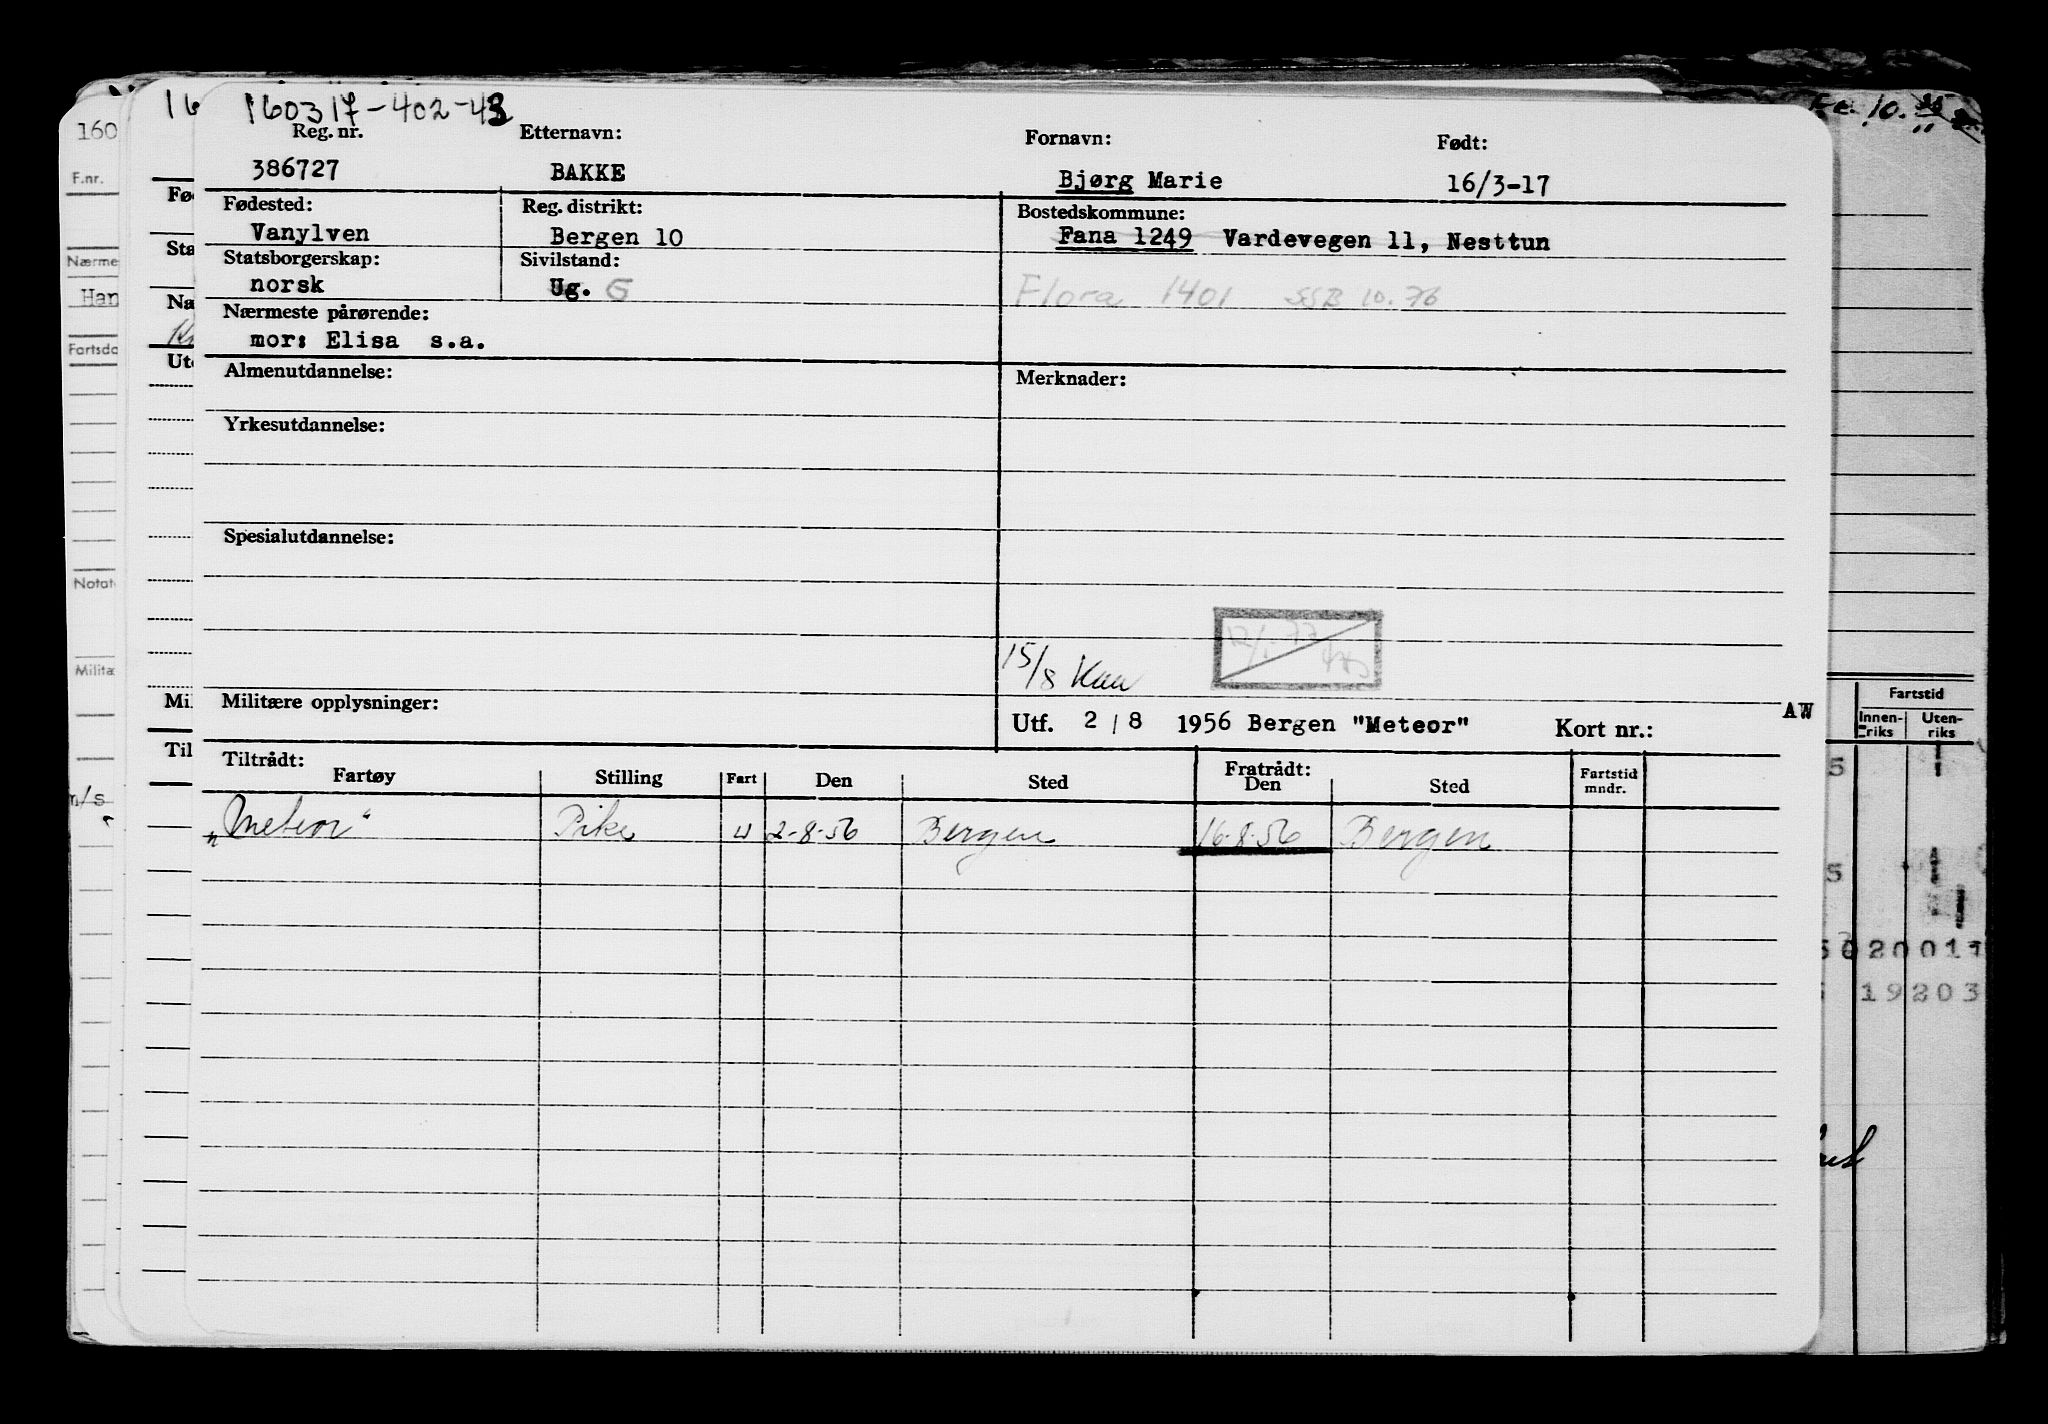 160317-402-43
Reg. nr. Etternavn: Fornavn: Født:
386727 BAKKE Bjørg Marie 16/3-17
Fødested: Reg. distrikt: Bostedskommune:
Vanylven Bergen 10 Fana 1249 Vardevegen 11, Nesttun
Statsborgerskap: Sivilstand:
norsk Ug. G Flora 1401 SSB 10.76
Nærmeste pårørende:
mor: Elisa s.a.
Almenutdannelse: Merknader:
Yrkesutdannelse:
Spesialutdannelse:
15/8 Kaa
Militære opplysninger: Utf. 2/8 1956 Bergen "Meteor" Kort nr.: AW
Tiltrådt: Fratrådt:
Fartøy Stilling Fart Den Sted Den Sted Fartstid mndr.
"Meteor" Pike U 2-8-56 Bergen 16-8-56 Bergen
160
F.nr.
Nærme
Han
Fartsda
Notat
Militæ
m/s
16
Fø
Sta
Næ
Ut
Mi
Til
Fartstid
Innen-riks Uten-riks
5
5
5020011
19203